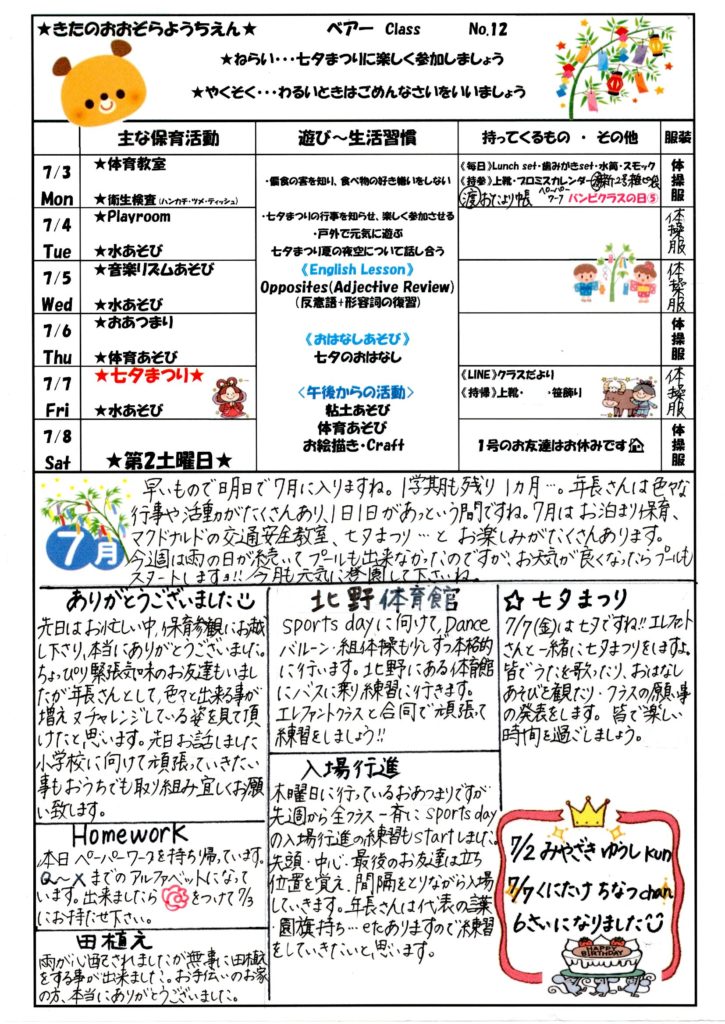 ★きたのおおぞらようちえん★
ベアー Class No.12
★ねらい・・・七夕まつりに楽しく参加しましょう
★やくそく・・・わるいときはごめんなさいをいいましょう
主な保育活動
遊び～生活習慣
持ってくるもの ・ その他
服装
7/3
Mon
★体育教室
★衛生検査(ハンカチ・ツメ・ティッシュ)
・偏食の害を知り、食べ物の好き嫌いをしない
《毎日》Lunch set・歯みがきset・水筒・スモック
《持参》上靴・プロミスカレンダー
おたより帳 ペーパー 7-7 バンビクラスの日⑤
体操服
7/4
Tue
★Playroom
★水あそび
・七夕まつりの行事を知らせ、楽しく参加させる
・戸外で元気に遊ぶ
七夕まつり夏の夜空について話し合う
体操服
7/5
Wed
★音楽リズムあそび
★水あそび
《English Lesson》
Opposites(Adjective Review)
(反意語+形容詞の復習)
体操服
7/6
Thu
★おあつまり
★体育あそび
《おはなしあそび》
七夕のおはなし
体操服
7/7
Fri
★七夕まつり★
★水あそび
<午後からの活動>
粘土あそび
体育あそび
お絵描き・Craft
《LINE》クラスだより
《持帰》上靴・ ・笹飾り
体操服
7/8
Sat
★第2土曜日★
1号のお友達はお休みです
体操服
7月
早いもので明日で7月に入りますね。1学期も残り1カ月…。年長さんは色々な
行事や活動がたくさんあり、1日1日があっという間ですね。7月はお泊まり保育、
マクドナルドの交通安全教室、七夕まつり…とお楽しみがたくさんあります。
今週は雨の日が続いてプールも出来なかったのですが、お天気が良くなったらプールも
スタートしますョ!! 今月も元気に登園して下さいね。
ありがとうございました
先日はお忙しい中、保育参観にお越
し下さり、本当にありがとうございました。
ちょっぴり緊張気味のお友達もいまし
たが年長さんとして、色々と出来る事が
増えチャレンジしている姿を見て頂
けたと思います。先日お話しました
小学校に向けて頑張っていきたい
事もおうちでも取り組み宜しくお願
い致します。
Homework
本日ペーパーワークを持ち帰っています。
までのアルファベットになって
います。出来ましたら をつけて7/3
にお持たせ下さい。
田植え
雨が心配されましたが無事に田植え
をする事が出来ました。お手伝いのお家
の方、本当にありがとうございました。
北野体育館
sports dayに向けて、Dance
バルーン・組体操も少しずつ本格的
に行います。北野にある体育館
にバスに乗り練習に行きます。
エレファントクラスと合同で頑張って
練習をしましょう!!
入場行進
木曜日に行っているおあつまりですが
先週から全クラス一斉にsports day
の入場行進の練習もstartしました。
先頭・中心・最後のお友達は立ち
位置を覚え、間隔をとりながら入場
していきます。年長さんは代表の言葉
・園旗持ち…etcありますので練習
をしていきたいと思います。
☆七夕まつり
7/7(金)は七夕ですね!!エレファント
さんと一緒に七夕まつりをしますョ。
皆でうたを歌ったり、おはなし
あそびを観たり・クラスの願い事
の発表をします。皆で楽しい
時間を過ごしましょう。
7/2 みやざき ゆうし kun
7/7 くにたけ ちなつ chan
6さいになりました
HAPPY
BIRTHDAY